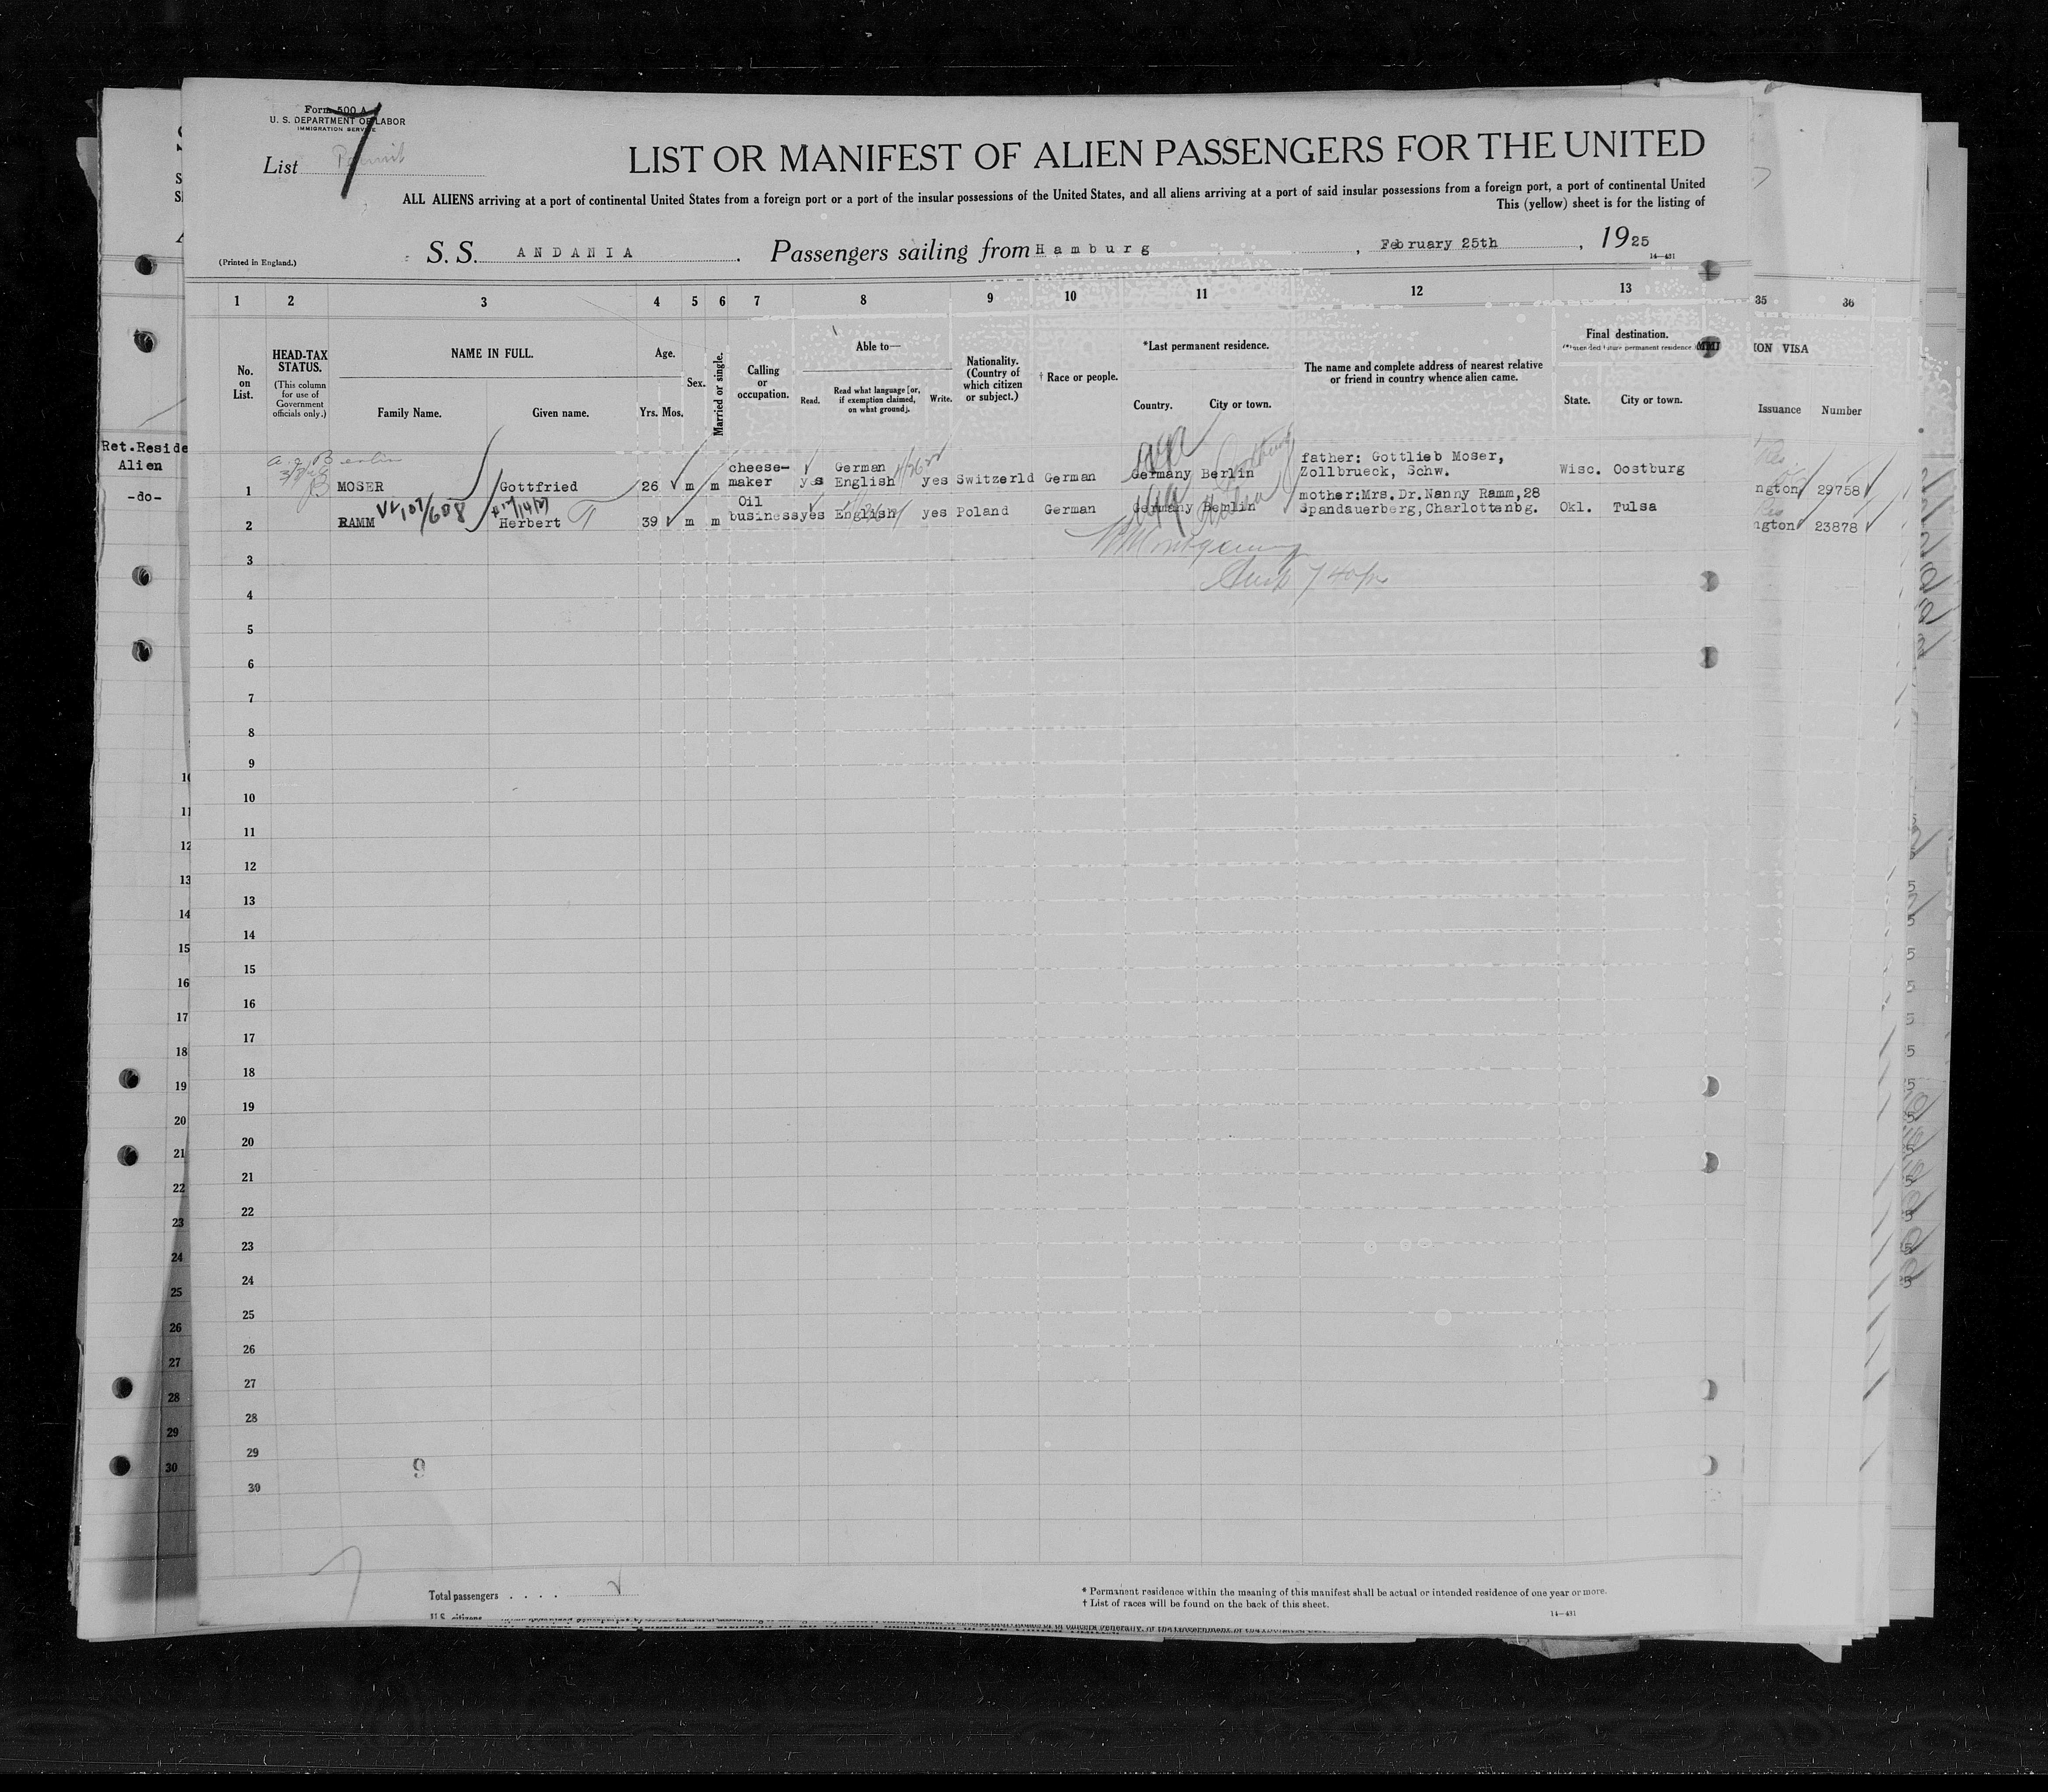 Form 500 A
U. S. DEPARTMENT OF LABOR
IMMIGRATION SERVICE
List Permit 7
LIST OR MANIFEST OF ALIEN PASSENGERS FOR THE UNITED
ALL ALIENS arriving at a port of continental United States from a foreign port or a port of the insular possessions of the United States, and all aliens arriving at a port of said insular possessions from a foreign port, a port of continental United
This (yellow) sheet is for the listing of
(Printed in England.)
S. S. ANDANIA. Passengers sailing from Hamburg, February 25th, 1925
14—431
1 2 3 4 5 6 7 8 9 10 11 12 13 35 36
No. on List.
HEAD-TAX STATUS.
(This column for use of Government officials only.)
NAME IN FULL.
Family Name. Given name.
Age.
Yrs. Mos.
Sex.
Married or single.
Calling or occupation.
Able to—
Read. Read what language [or, if exemption claimed, on what ground]. Write.
Nationality. (Country of which citizen or subject.)
† Race or people.
*Last permanent residence.
Country. City or town.
The name and complete address of nearest relative or friend in country whence alien came.
Final destination.
State. City or town.
ION VISA
Issuance Number
Ret.Reside
Alien
-do-
1 MOSER Gottfried 26 m m cheese-maker yes German English yes Switzerld German Germany Berlin father: Gottlieb Moser, Zollbrueck, Schw. Wisc. Oostburg ngton 29758
2 RAMM Herbert 39 m m Oil business yes English yes Poland German Germany Berlin mother:Mrs.Dr.Nanny Ramm,28 Spandauerberg,Charlottenbg. Okl. Tulsa ngton 23878
3
4
5
6
7
8
9
10
11
12
13
14
15
16
17
18
19
20
21
22
23
24
25
26
27
28
29
30
9
Total passengers . . . .
* Permanent residence within the meaning of this manifest shall be actual or intended residence of one year or more.
† List of races will be found on the back of this sheet.
14—431
U.S. citizens